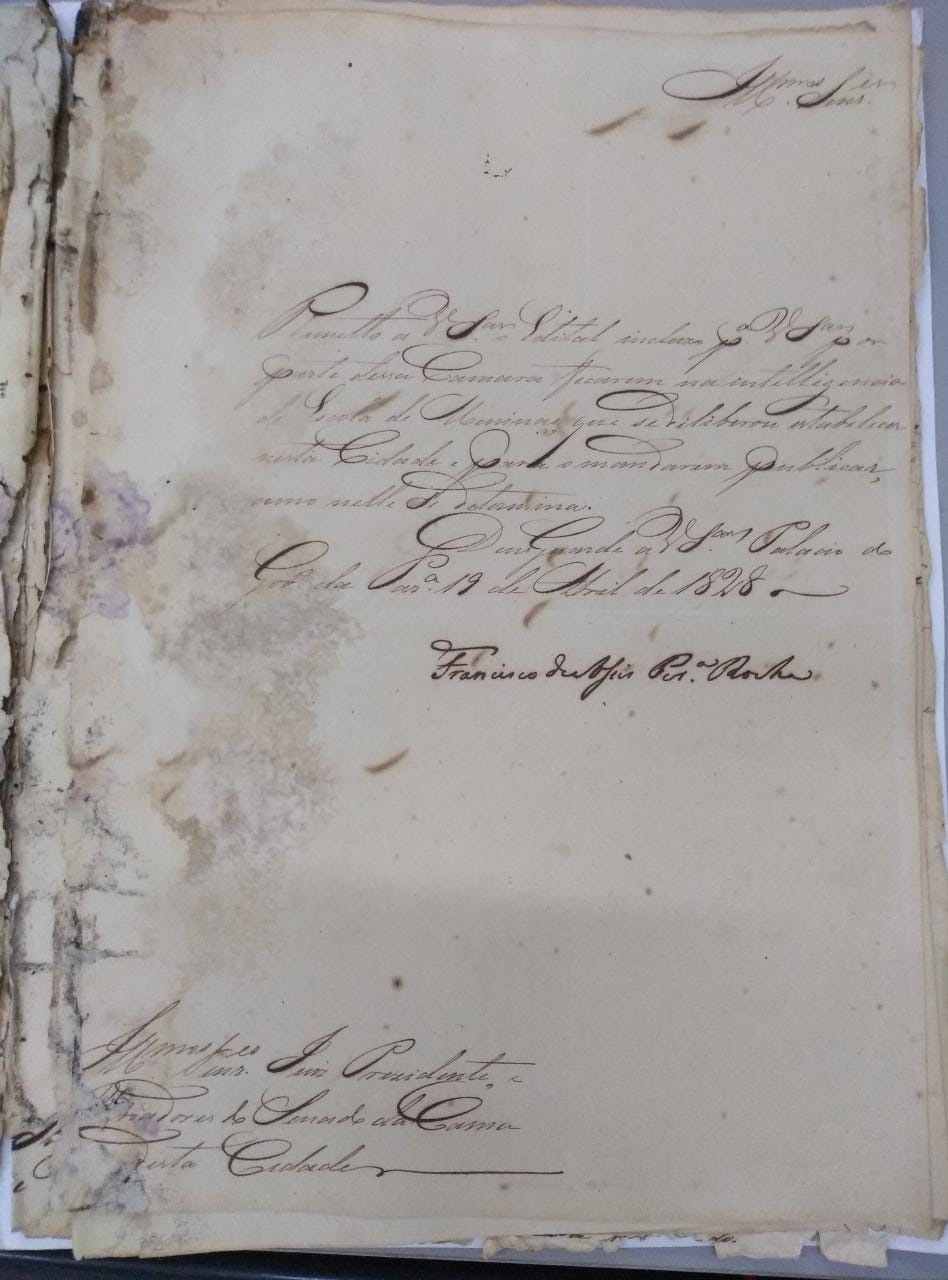 Illmos Senr.es
Remetto a V Sas. o Edital incluzo pa. V Sas por
parte dessa Camara ficarem na intelligencia
da Escola de Meninas que se deliberou estabelecer
nesta Cidade e para o mandarem publicar,
como nelle se determina.
Deus Guarde a V Sas. Palacio do
Gov.o da Par.a 19 de Abril de 1828
Francisco de Assis Per.a Rocha
Illmos Senr.es Juiz Prezidente, e
Vriadores do Senado da Cama
desta Cidade